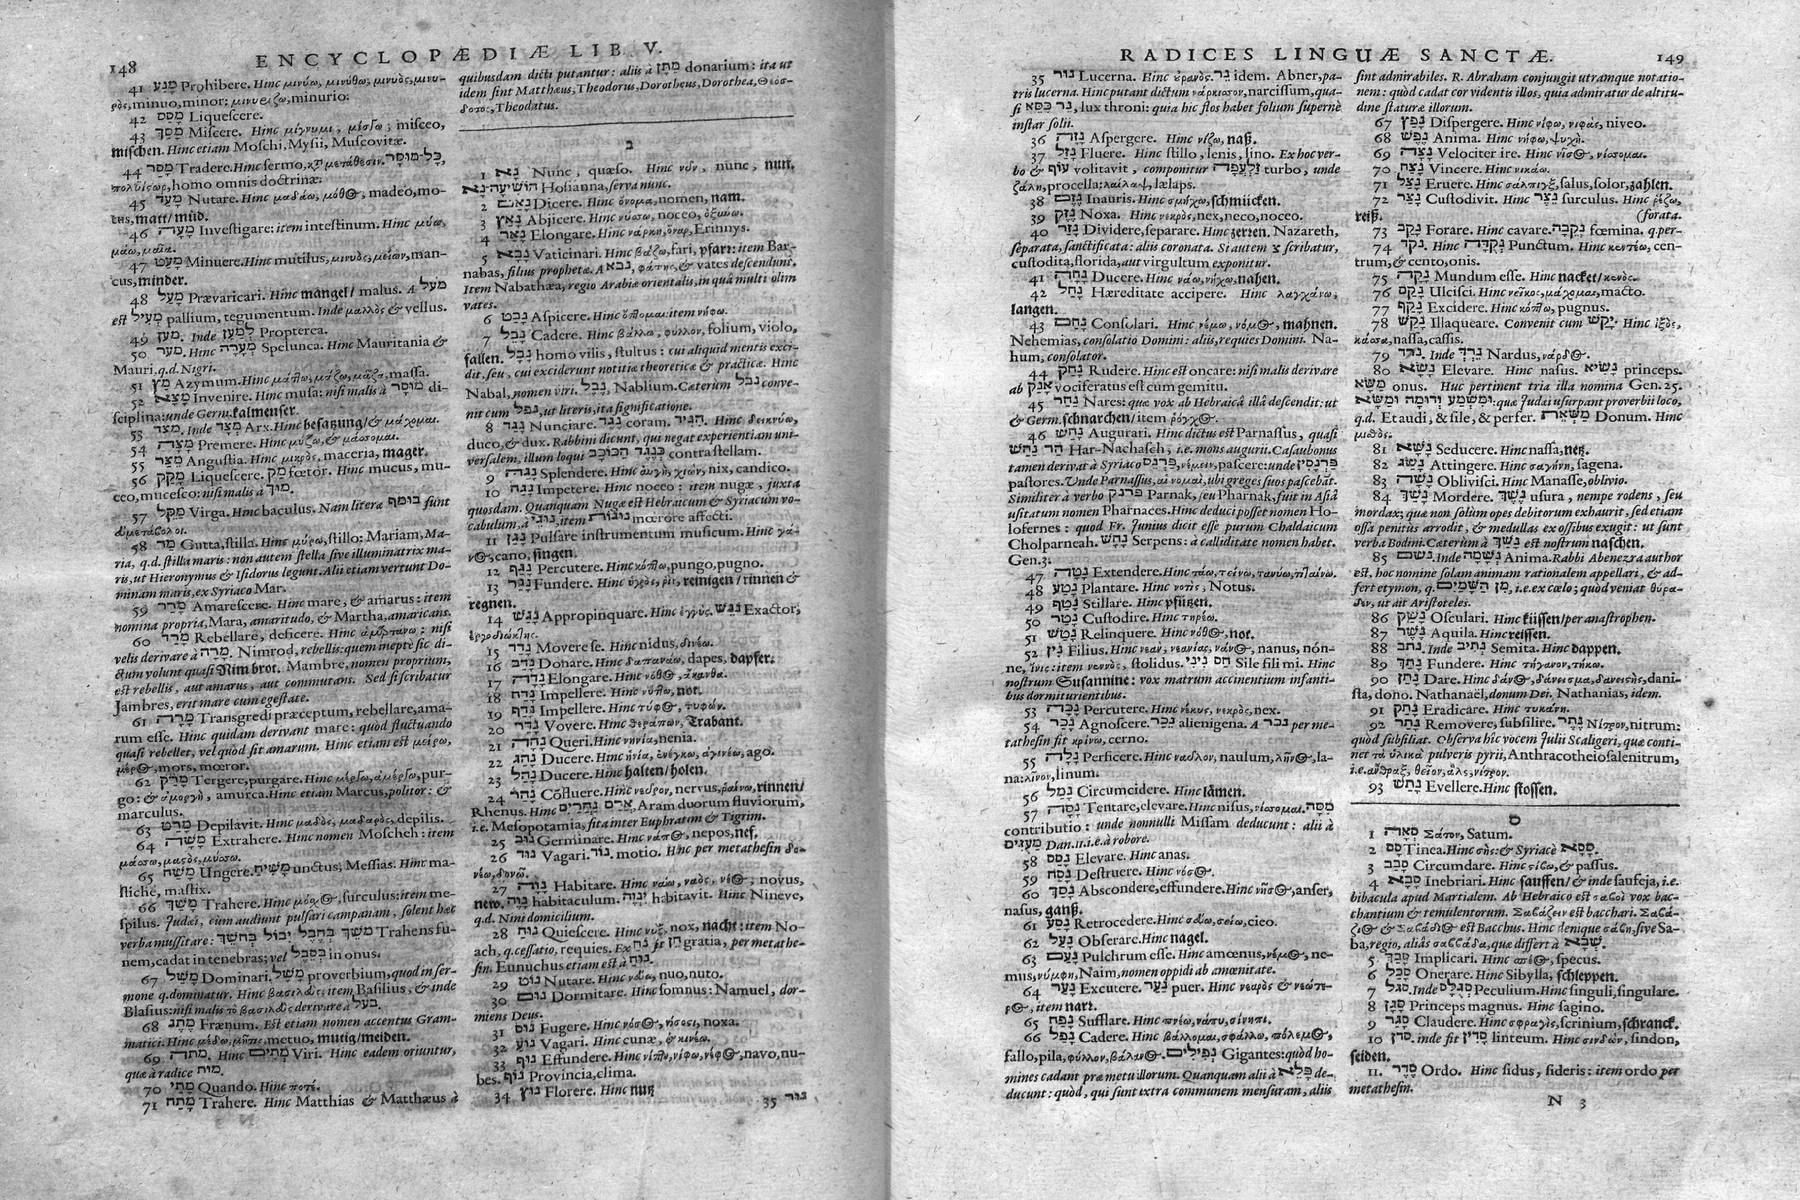 148 ENCYCLOPÆDIÆ LIB V.
41 מָנַע Prohibere. Hinc μινύω, μινύθω, μινυὸς, μινυ-
ρὸς, minuo, minor: μινυείζω, minurio:
42 מָסַס Liquescere.
43 מָסַךְ Miscere. Hinc μίγνυμι, μίσγω; misceo,
mischen. Hinc etiam Moschi, Mysii, Muscovitæ.
44 מָסַר Tradere. Hinc sermo, κτ μετάθεσιν. כָּל־מוּסָר,
homo omnis doctrinæ.
45 Nutare. Hinc μαδάω, μόθ, madeo, mo-
tus, matt/ müd.
46 מָעָה Investigare: item intestinum. Hinc μύω,
μάω, μαῖα.
47 מָעַט Minuere. Hinc mutilus, μινυὸς, μείων, man-
cus, minder.
48 מָעַל Prævaricari. Hinc mangel/ malus. A מעל
est מְעִיל pallium, tegumentum. Inde μαλλὸς & vellus.
49 מען. Inde לְמַעַן Propterea.
50 מער. Hinc מְעָרָה Spelunca. Hinc Mauritania &
Mauri, q.d. Nigri.
51 מַץ Azymum. Hinc μάττω, μάζω, μᾶζα, massa.
52 מָצָא Invenire. Hinc musa: nisi malis à מוּסָר di-
sciplina: unde Germ. kalmenser.
53 מצר. Inde מְצָר Arx. Hinc besatzung/ & μάχομαι.
54 מָצָה Premere. Hinc μύζω, & μάσσομαι.
55 מֵצַר Angustia. Hinc μικρὸς, maceria, mager.
56 מָקַק Liquescere. מַק fœtor. Hinc mucus, mu-
ceo, mucesco: nisi malis à מוּךְ.
57 מַקֵּל Virga. Hinc baculus. Nam literæ בומף sunt
εὐμετάβολοι.
58 מַר Gutta, stilla. Hinc μύρω, stillo: Mariam, Ma-
ria, q.d. stilla maris: non autem stella sive illuminatrix ma-
ris, ut Hieronymus & Isidorus legunt. Alii etiam vertunt Do-
minam maris, ex Syriaco Mar.
59 מָרַר Amarescere. Hinc mare, & amarus: item
nomina propria, Mara, amaritudo, & Martha, amaricans.
60 מָרַד Rebellare, deficere. Hinc ἁμαρτάνω: nisi
velis derivare à מָרָה. Nimrod, rebellis: quem ineptè sic di-
ctum volunt quasi Nim brot. Mambre, nomen proprium,
est rebellis, aut amarus, aut commutans. Sed si scribatur
Jambres, erit mare cum egestate.
61 מָרָה Transgredi præceptum, rebellare, ama-
rum esse. Hinc quidam derivant mare: quòd fluctuando
quasi rebellet, vel quòd sit amarum. Hinc etiam est μείρω,
μόρ, mors, mœror.
62 מָרַק Tergere, purgare. Hinc μέργω, ἀμέργω, pur-
go: & ἀμοργὴ, amurca. Hinc etiam Marcus, politor: &
marculus.
63 מָרַט Depilavit. Hinc μαδὸς, μαδαρὸς, depilis.
64 מָשָׁה Extrahere. Hinc nomen Moscheh: item
65 מָשַׁח Ungere. מָשִׁיחַ unctus, Messias. Hinc ma-
stiche, mastix.
66 מָשַׁךְ Trahere. Hinc μόσχ, surculus: item me-
spilus. Judæi, cum audiunt pulsari campanam, solent hæc
verba mussitare: מֹשֵׁךְ בְּחֶבֶל יִבּוֹל בְּחֹשֶׁךְ Trahens fu-
nem, cadat in tenebras; vel בְּסֵבֶל in onus.
67 מָשַׁל Dominari. מָשָׁל proverbium, quod in ser-
mone q. dominatur. Hinc βασιλεὺς; item Basilius, & inde
Blasius: nisi malis τὸ βασιλεὺς derivare à בעל.
68 מֶתֶג Frænum. Est etiam nomen accentus Gram-
matici. Hinc μέδω, metuo, mutig/meiden.
69 מתה. Hinc מְתִים Viri. Hinc eadem oriuntur,
quæ à radice מות.
70 מָתַי Quando. Hinc ποτέ.
71 מָתַח Trahere. Hinc Matthias & Matthæus à
quibusdam dicti putantur: aliis à מַתָּן donarium: ita ut
idem sint Matthæus, Theodorus, Dorotheus, Dorothea, Θεόσ-
δοτος, Theodatus.
נ
1 נָא Nunc, quæso. Hinc νῦν, nunc, nun.
הוֹשִׁיעָה־נָּא Hosianna, serva nunc.
2 נָאַם Dicere. Hinc ὄνομα, nomen, nam.
3 נָאַץ Abjicere. Hinc νύσσω, noceo, ὀξύνω.
4 נָאַר Elongare. Hinc νάρκη, ὄναρ, Erinnys.
5 נָבָא Vaticinari. Hinc βάζω, fari, pfarr: item Bar-
nabas, filius prophetæ. A נבא, φάτης, & vates descendunt.
Item Nabathæa, regio Arabiæ orientalis, in quâ multi olim
vates.
6 נָבַט Aspicere. Hinc ὄπτομαι: item νήφω.
7 נָבַל Cadere. Hinc βάλλω, φύλλον, folium, violo,
fallen. נָבָל homo vilis, stultus: cui aliquid mentis exci-
dit, seu, cui exciderunt notitiæ theoreticæ & practicæ. Hinc
Nabal, nomen viri. נֶבֶל, Nablium. Cæterùm נבל conve-
nit cum נפל, ut literis, ita significatione.
8 נָגַד Nunciare. נֶגֶד coram. הִגִּיד. Hinc δεικνύω,
duco, & dux. Rabbini dicunt, qui negat experientiam uni-
versalem, illum loqui כְּנֶגֶד הַכּוֹכָב contra stellam.
9 נָגַהּ Splendere. Hinc αὐγὴ, χιὼν, nix, candico.
10 נָגַח Impetere. Hinc noceo: item nugæ, juxta
quosdam. Quanquam Nugæ est Hebraicum & Syriacum vo-
cabulum, à נוּגֵי, item נוּגוֹת mœrore affecti.
11 נָגַן Pulsare instrumentum musicum. Hinc γά-
ν, cano, singen.
12 נָגַף Percutere. Hinc κόπτω, pungo, pugno.
13 נָגַר Fundere. Hinc ὑγρὸς, ῥεῖ, reinigen/ rinnen &
regnen.
14 נָגַשׁ Appropinquare. Hinc ἐγγύς. נֹגֵשׂ Exactor,
ἐργοδιώκτης.
15 נָדַד Movere se. Hinc nidus, δινέω.
16 נָדַב Donare. Hinc δαπανάω, dapes, dapfer.
17 נָדָה Elongare. Hinc νόθ, ἄκανθα.
18 נָדַח Impellere. Hinc νύττω, not.
19 נָדַף Impellere. Hinc τύφ, τυφῶν.
20 נָדַר Vovere. Hinc θεράπων, Trabant.
21 נָהָה Queri. Hinc νηνία, nenia.
22 נָהַג Ducere. Hinc ἡνία, ἐνέγκω, ἀγινέω, ago.
23 נָהַל Ducere. Hinc halten/holen.
24 נָהַר Cōfluere. Hinc νεῦρον, nervus, ῥαίνω, rinnen/
Rhenus. Hinc אֲרַם נַהֲרַיִם, Aram duorum fluviorum,
i.e. Mesopotamia, sita inter Euphratem & Tigrim.
25 נוּב Germinare. Hinc νάπ, nepos, nef.
26 נוּד Vagari. נוֹד. motio. Hinc per metathesin δο-
νέω, δονῶ.
27 נָוָה Habitare. Hinc ναίω, ναὸς, νέ, novus,
new. נָוֶה habitaculum. יִנְוֶה habitavit. Hinc Nineve,
q.d. Nini domicilium.
28 נוּחַ Quiescere. Hinc νὺξ, nox, nacht: item No-
ach, q. cessatio, requies. Ex נֹחַ fit חֵן gratia, per metathe-
sin. Eunuchus etiam est à נוּחַ.
29 נוּט Nutare. Hinc νεύω, nuo, nuto.
30 נוּם Dormitare. Hinc somnus: Namuel, dor-
miens Deus.
31 נוּס Fugere. Hinc νόσ, νῆσοι, noxa.
32 נוּעַ Vagari. Hinc cunæ, & κινέω.
33 נוּף Effundere. Hinc νίπτω, νίφω, νέφ, navo, nu-
bes. נוֹף Provincia, clima.
34 נוּץ Florere. Hinc nuß
35 נור
RADICES LINGUÆ SANCTÆ. 149
35 נוּר Lucerna. Hinc οὐρανός. נִר idem. Abner, pa-
tris lucerna. Hinc putant dictum νάρκισσον, narcissum, qua-
si נֵר כִּסֵּא, lux throni: quia hic flos habet folium supernè
instar solii.
36 נָזָה Aspergere. Hinc νίζω, naß.
37 נָזַל Fluere. Hinc stillo, lenis, lino. Ex hoc ver-
bo & עוּף volitavit, componitur זַלְעָפָה turbo, unde
ζάλη, procella: λαίλαψ, lælaps.
38 נֶזֶם Inauris. Hinc σμήχω, schmücken.
39 נֶזֶק Noxa. Hinc νεκρὸς, nex, neco, noceo.
40 נָזַר Dividere, separare. Hinc zerren. Nazareth,
separata, sanctificata: aliis coronata. Si autem צ scribatur,
custodita, florida, aut virgultum exponitur.
41 נָחָה Ducere. Hinc νάω, νήχω, nahen.
42 נָחַל Hæreditate accipere. Hinc λαγχάνω,
langen.
43 נָחַם Consolari. Hinc νέμω, νόμ, mahnen.
Nehemias, consolatio Domini: aliis, requies Domini. Na-
hum, consolator.
44 נָחַק Rudere. Hinc est oncare: nisi malis derivare
ab אָנַק vociferatus est cum gemitu.
45 נָחַר Nares: quæ vox ab Hebraicâ illâ descendit: ut
& Germ. schnarchen/ item ῥόγχ.
46 נָחַשׁ Augurari. Hinc dictus est Parnassus, quasi
הַר נַחַשׁ Har-Nachasch, i.e. mons augurii. Casaubonus
tamen derivat à Syriaco פַּרְנֵס, νέμειν, pascere: unde פַּרְנָסִין
pastores. Unde Parnassus, αἱ νομαὶ, ubi greges suos pascebāt.
Similiter à verbo פרנק Parnak, seu Pharnak, fuit in Asiâ
usitatum nomen Pharnaces. Hinc deduci posset nomen Ho-
lofernes: quod Fr. Junius dicit esse purum Chaldaicum
Cholparneah. נָחָשׁ Serpens: à calliditate nomen habet.
Gen.3.
47 נָטָה Extendere. Hinc τάω, τείνω, τανύω, τιταίνω.
48 נָטַע Plantare. Hinc νοτὶς, Notus.
49 נָטַף Stillare. Hinc pfützen.
50 נָטַר Custodire. Hinc τηρέω.
51 נָטַשׁ Relinquere. Hinc νόθ, not.
52 נִין Filius. Hinc νεὰν, νεανίας, νάν, nanus, nón-
ne, ἶνις: item νεννὸς, stolidus. חַס נִינִי Sile fili mi. Hinc
nostrum Susannine: vox matrum accinentium infanti-
bus dormiturientibus.
53 נָכָה Percutere. Hinc νέκυς, νεκρὸς, nex.
54 נָכַר Agnoscere. נֵכָר alienigena. A נכר per me-
tathesin fit κρίνω, cerno.
55 נָלָה Perficere. Hinc ναῦλον, naulum, λῆν, la-
na: λίνον, linum.
56 נָמַל Circumcidere. Hinc lämen.
57 נָסָה Tentare, elevare. Hinc nisus, νίσσομαι. מִסָּה
contributio: unde nonnulli Missam deducunt: alii à
מָעֻזִּים Dan. 11. i.e. à robore.
58 נָסַס Elevare. Hinc anas.
59 נָסַח Destruere. Hinc νόσ.
60 נָסַךְ Abscondere, effundere. Hinc νῆσ, anser,
nasus, ganß.
61 נָסַע Retrocedere. Hinc σεύω, σείω, cieo.
62 נָעַל Obserare. Hinc nagel.
63 נָעַם Pulchrum esse. Hinc amœnus, νέμ, ne-
mus, νύμφη, Naim, nomen oppidi ab amœnitate.
64 נָעַר Excutere. נַעַר puer. Hinc νεαρὸς & νεώτε-
ρ, item narr.
65 נָפַח Sufflare. Hinc πνέω, νάπυ, σίνηπι.
66 נָפַל Cadere. Hinc βάλλομαι, σφάλλω, πόλεμ,
fallo, pila, φύλλον, βάλαν. נְפִילִים Gigantes: quòd ho-
mines cadant præ metu illorum. Quanquam alii à פָּלָא de-
ducunt: quòd, qui sunt extra communem mensuram, aliis
sint admirabiles. R. Abraham conjungit utramque notatio-
nem: quòd cadat cor videntis illos, quia admiratur de altitu-
dine staturæ illorum.
67 נָפַץ Dispergere. Hinc νίφω, νιφὰς, niveo.
68 נֶפֶשׁ Anima. Hinc νήφω, ψυχή.
69 נָצָה Velociter ire. Hinc νῆσ, νίσσομαι.
70 נָצַח Vincere. Hinc νικάω.
71 נָצַל Eruere. Hinc σάλπιγξ, salus, solor, zahlen.
72 נָצַר Custodivit. Hinc נֵצֶר surculus. Hinc ῥέζω,
reiß. (forata.
73 נָקַב Forare. Hinc cavare. נְקֵבָה fœmina. q. per-
74 נקד. Hinc נְקֻדָּה Punctum. Hinc κεντέω, cen-
trum, & cento, onis.
75 נָקָה Mundum esse. Hinc nacket/ κενός.
76 נָקַם Ulcisci. Hinc νεῖκος, μάχομαι, macto.
77 נָקַף Excidere. Hinc κόπτω, pugnus.
78 נָקַשׁ Illaqueare. Convenit cum יָקַשׁ. Hinc ἰξὸς,
nassa, cassis.
79 נרד. Inde נֵרְדְּ Nardus, νάρδ.
80 נָשָׂא Elevare. Hinc nasus. נָשִׂיא princeps.
מַשָּׂא onus. Huc pertinent tria illa nomina Gen. 25.
וּמִשְׁמָע וְדוּמָה וּמַשָּׂא: quæ Judæi usurpant proverbii loco,
q.d. Et audi, & sile, & perfer. מַשְׂאֵת Donum. Hinc
μισθός.
81 נָשָׁא Seducere. Hinc nassa, netz.
82 נָשַׂג Attingere. Hinc σαγήνη, sagena.
83 נָשָׁה Oblivisci. Hinc Manasse, oblivio.
84 נָשַׁךְ Mordere. נֶשֶׁךְ usura, nempe rodens, seu
mordax; quæ non solùm opes debitorum exhaurit, sed etiam
ossa penitùs arrodit, & medullas ex ossibus exugit: ut sunt
verba Bodini. Cæterùm à נָשַׁךְ est nostrum naschen.
85 נשם. Inde נְשָׁמָה Anima. Rabbi Abenezra author
est, hoc nomine solam animam rationalem appellari, & ad-
fert etymon, q. מִן הַשָּׁמַיִם, i.e. ex cœlo; quòd veniat θύρα-
θεν, ut ait Aristoteles.
86 נָשַׁק Osculari. Hinc küssen/per anastrophen.
87 נֶשֶׁר Aquila. Hinc reissen.
88 נתב. Inde נָתִיב Semita. Hinc dappen.
89 נָתַךְ Fundere. Hinc τήγανον, τήκω.
90 נָתַן Dare. Hinc δάν, δάνεισμα, δανειστὴς, dani-
sta, dono. Nathanaël, donum Dei. Nathanias, idem.
91 נָתַק Eradicare. Hinc τυκάνη.
92 נָתַר Removere, subsilire. נֶתֶר Νίτρον, nitrum:
quòd subsiliat. Observa hîc vocem Julii Scaligeri, quæ conti-
net τὰ ὑλικὰ pulveris pyrii, Anthracotheiosalenitrum,
i.e. ἄνθραξ, θεῖον, ἃλς, νίτρον.
93 נָתַשׁ Evellere. Hinc stossen.
ס
1 סְאָה Σάτον, Satum.
2 סָס Tinea. Hinc σής: & Syriacè סָסָא.
3 סָבַב Circumdare. Hinc & passus.
4 סָבָא Inebriari. Hinc sauffen/ & inde saufeja, i.e.
bibacula apud Martialem. Ab Hebraico est σαβοὶ vox bac-
chantium & temulentorum. Σαβάζειν est bacchari. Σαβά-
ζι & Σαβάδι est Bacchus. Hinc denique σάβη, sive Sa-
ba, regio, aliàs σαββάδα, quæ differt à שְׁבָא.
5 סָבַךְ Implicari. Hinc specus.
6 סָבַל Onerare. Hinc Sibylla, schleppen.
7 סגל. Inde סְגֻלָּה Peculium. Hinc singuli, singulare.
8 סָגַן Princeps magnus. Hinc sagino.
9 סָגַר Claudere. Hinc σφραγὶς, scrinium, schranck.
10 סדן. inde fit סָדִין linteum. Hinc σινδὼν, sindon,
seiden.
11. סֵדֶר Ordo. Hinc sidus, sideris: item ordo per
metathesin.
N 3